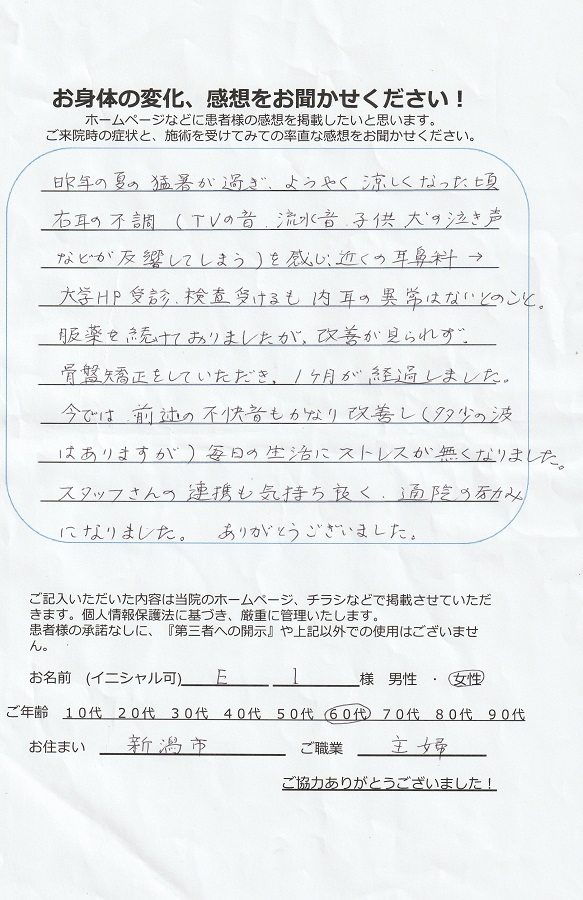 お身体の変化、感想をお聞かせください！
ホームページなどに患者様の感想を掲載したいと思います。
ご来院時の症状と、施術を受けてみての率直な感想をお聞かせください。
昨年の夏の猛暑が過ぎ、ようやく涼しくなった頃
右耳の不調（TVの音、流水音、子供、犬の泣き声
などが反響してしまう）を感じ、近くの耳鼻科→
大学HP受診、検査受けるも内耳の異常はないとのこと。
服薬を続けておりましたが、改善が見られず、
骨盤矯正をしていただき、1ヶ月が経過しました。
今では、前述の不快音もかなり改善し（多少の波
はありますが）毎日の生活にストレスが無くなりました。
スタッフさんの連携も気持ち良く、通院の励み
になりました。　ありがとうございました。
ご記入いただいた内容は当院のホームページ、チラシなどで掲載させていただ
きます。個人情報保護法に基づき、厳重に管理いたします。
患者様の承諾なしに、『第三者への開示』や上記以外での使用はございませ
ん。
お名前　(イニシャル可) E I 様　男性　・　女性
ご年齢　１０代　２０代　３０代　４０代　５０代　６０代　７０代　８０代　９０代
お住まい　新潟市　ご職業　主婦
ご協力ありがとうございました！